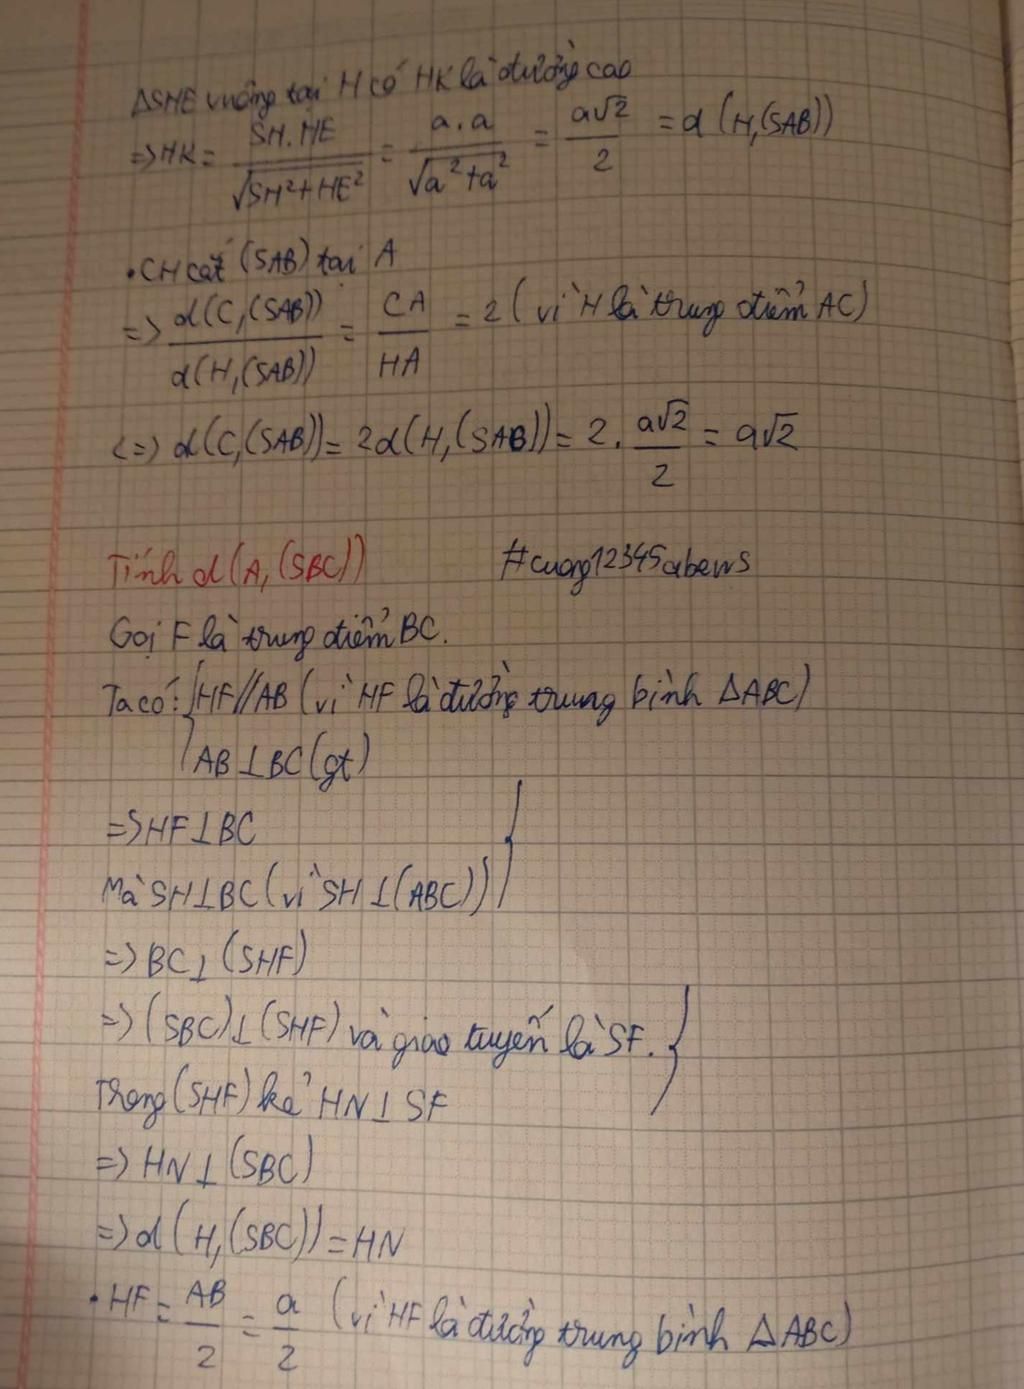 ΔSHE vuông tại H có HK là đường cao
=> HK = SH.HE / √(SH²+HE²) = a.a / √(a²+a²) = a√2 / 2 = d(H,(SAB))
• CH cắt (SAB) tại A
=> d(C,(SAB)) / d(H,(SAB)) = CA / HA = 2 (vì H là trung điểm AC)
<=> d(C,(SAB)) = 2d(H,(SAB)) = 2. a√2 / 2 = a√2
Tính d(A,(SBC)) #cuong12345abews
Gọi F là trung điểm BC.
Ta có: { HF // AB (vì HF là đường trung bình ΔABC)
AB ⊥ BC (gt)
=> HF ⊥ BC
Mà SH ⊥ BC (vì SH ⊥ (ABC)) }
=> BC ⊥ (SHF)
=> (SBC) ⊥ (SHF) và giao tuyến là SF. }
Trong (SHF) kẻ HN ⊥ SF
=> HN ⊥ (SBC)
=> d(H,(SBC)) = HN
• HF = AB / 2 = a / 2 (vì HF là đường trung bình ΔABC)